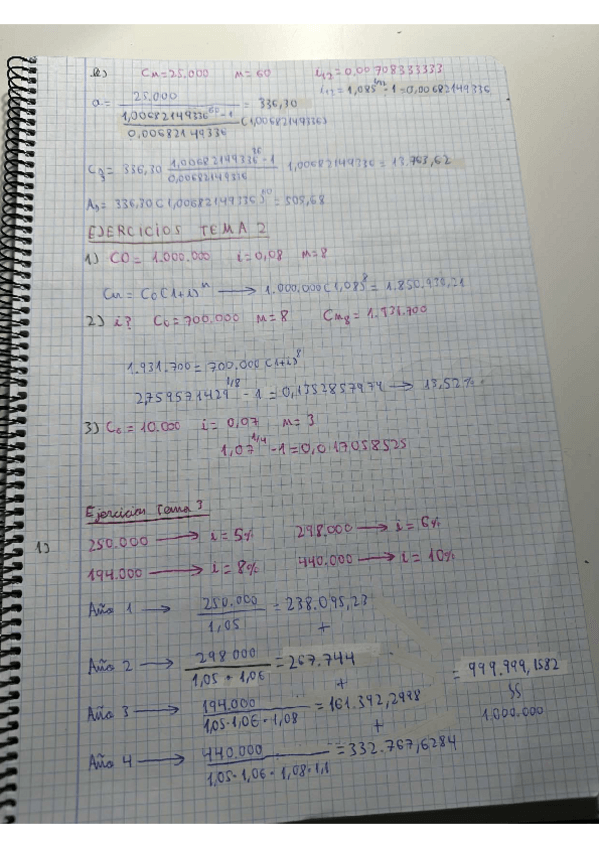 Cn=25.000 n=60 i12=0,00708333333
i12=1,085^1/12-1=0,00682149336
a= 25.000 / ((1,00682149336^60-1)/0,00682149336 (1,00682149336)) = 336,30
C3= 336,30 (1,00682149336^36-1)/0,00682149336 1,00682149336 = 13.763,62
A3= 336,30 (1,00682149336)^60=505,68
EJERCICIOS TEMA 2
1) C0= 1.000.000 i=0,08 n=8
Cn= C0(1+i)^n → 1.000.000(1,08)^8= 1.850.930,21
2) i? C0=700.000 n=8 Cn8=1.931.700
1.931.700=700.000(1+i)^8
2,759571429^1/8 - 1 = 0,1352857974 → 13,52%
3) C0=10.000 i=0,07 n=3
1,07^1/4-1=0,017058525
Ejercicios tema 3
1) 250.000 → i=5% 298.000 → i=6%
194.000 → i=8% 440.000 → i=10%
Año 1 → 250.000 / 1,05 = 238.095,23
+
Año 2 → 298.000 / 1,05 · 1,06 = 267.744
+
= 999.999,1582
Año 3 → 194.000 / 1,05·1,06·1,08 = 161.392,2998
1.000.000
+
Año 4 → 440.000 / 1,05·1,06·1,08·1,1 = 332.767,6284